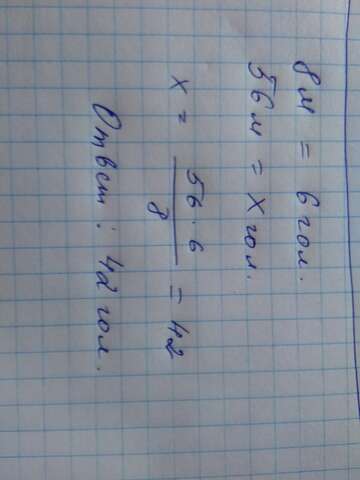 8м = 6 гол.
56 м = х гол.
х = 56 · 6 / 8 = 42
Ответ : 42 гол.